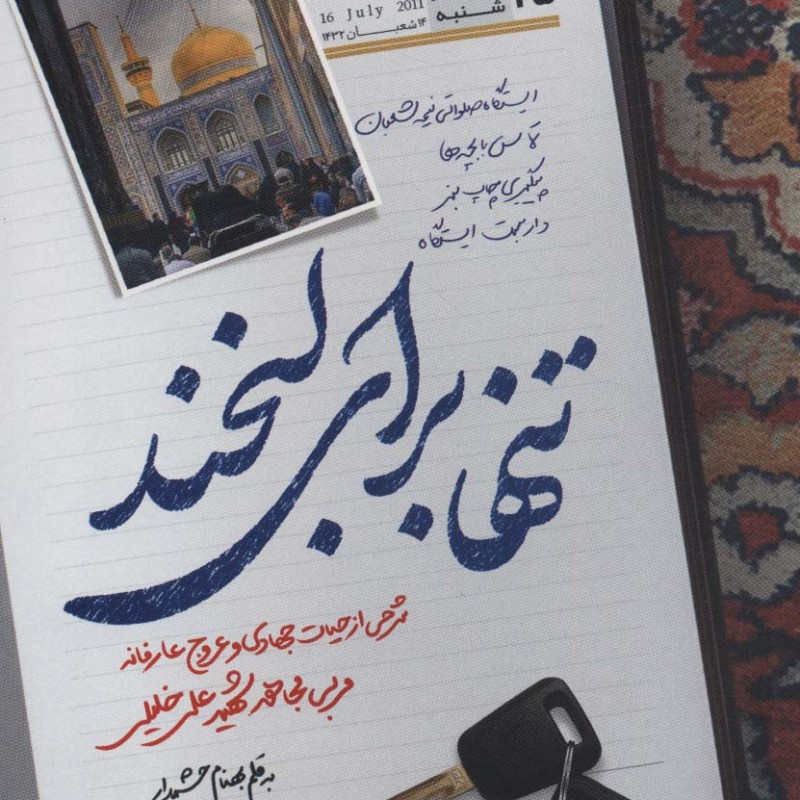 16 July 2011
شنبه
۲۵
۱۴ شعبان ۱۴۳۲
ایستگاه صلواتی نیمه شعبان
تماس با بچه ها
پیگیری چاپ بنر
داربست ایستگاه
تنها برای لبخند
شرحی از حیات جهادی و عروج عارفانه
مربی مجاهد شهید علی خلیلی
به قلم بهنام